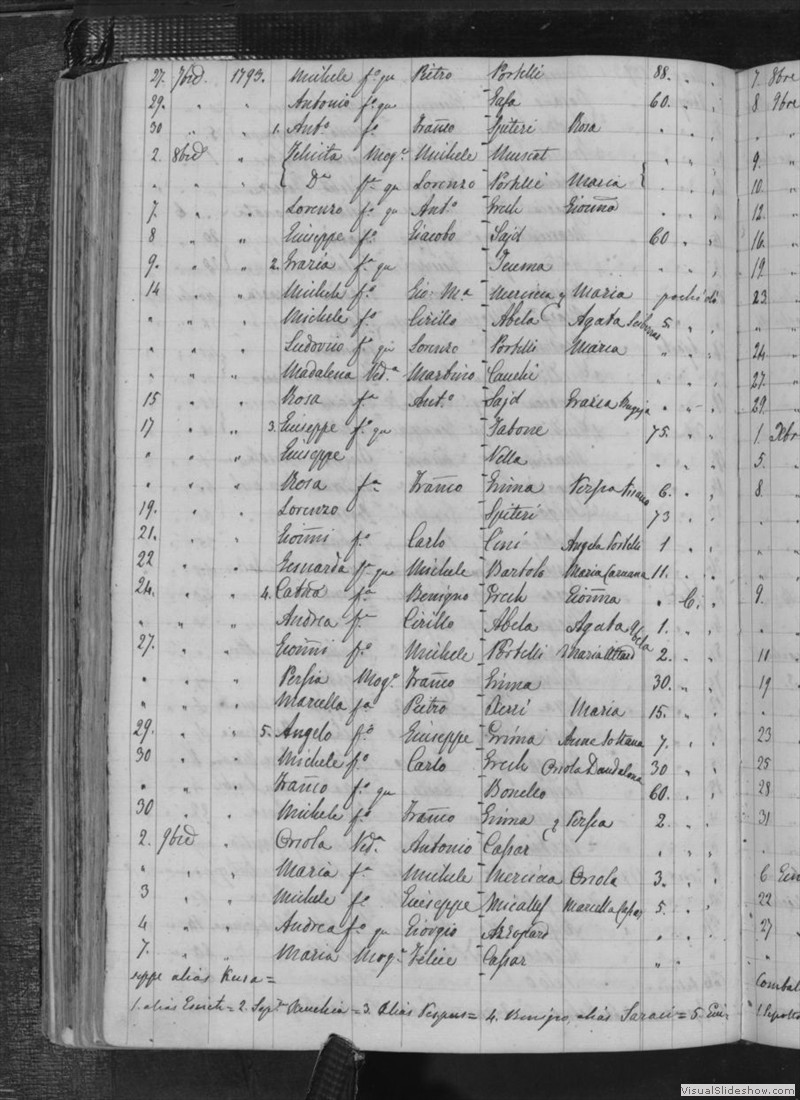 27. 7bre. 1793. Michele f.o qu Pietro Portelli 88. 7. 8bre
29. " " Antonio f.o qu 60. " " 8 9bre
30 " " 1. Ant.o f.o Franco Spiteri Rosa " " "
2. 8bre " Felicita Mog.e Michele Muscat " 9.
" " " D.a f.a qu Lorenzo Portelli Maria " 10.
7. " " Lorenzo f.o qu Ant.o Grech Gioanna " 12.
8 " " Giuseppe f.o Giacobo Sajd 60 " " 16.
9. " " 2. Grazia f.a qu " " 19.
14 " " Michele f.o Gio: M.a Mercieca Maria pochi dì 23
" " " Michele f.o Cirillo Abela Agata 5. " "
" " " Ludovico f.o qu Lorenzo Portelli Maria " " 24
" " " Madalena Ved.a Martino Cauchi " " 27.
15 " " Rosa f.a Ant.o Sajd Grazia Bugeja " " 29.
17 " " 3. Giuseppe f.o qu Tabone 75. " " 1. Xbr
" " " Giuseppe Vella " " " 5.
" " " Rosa f.a Franco Grima 6. " " 8.
19. " " Lorenzo Spiteri 73 " "
21. " " Gioanni f.o Carlo Cini Angela Portelli 1 " "
22 " " f.a qu Michele Bartolo Maria Caruana 11. " "
24. " " 4. Catra f.a Benigno Grech Gioanna " C. " 9.
" " " Andrea f.o Cirillo Abela Agata Abela 1. " "
27. " " Gioanni f.o Michele Portelli Maria Attard 2. " " 11
" " " Persia Mog.e Franco Grima 30. " " 19
" " " Marcella f.a Pietro Maria 15. " "
29. " " 5. Angelo f.o Giuseppe Grima Anna Sultana 7. " " 23
30 " " Michele f.o Carlo Grech Oriola 30 " " 25
" " " Franco f.o qu Bonello 60. " " 28
30 " " Michele f.o Franco Grima Persia 2. " " 31
2. 9bre " Oriola Ved.a Antonio Capar " " "
" " " Maria f.a Michele Mercieca Oriola 3. " " 6
3 " " Michele f.o Giuseppe Micallef Marcella Capar 5. " " 22
4 " " Andrea f.o qu Giorgio Azzopard " " 27
7. " " Maria Mog.e Felice Capar " "
seppe alias =
1. alias = 2. Sept = 3. Alias = 4. Benigno, alias = 5. Giu-
VisualSlideshow.com